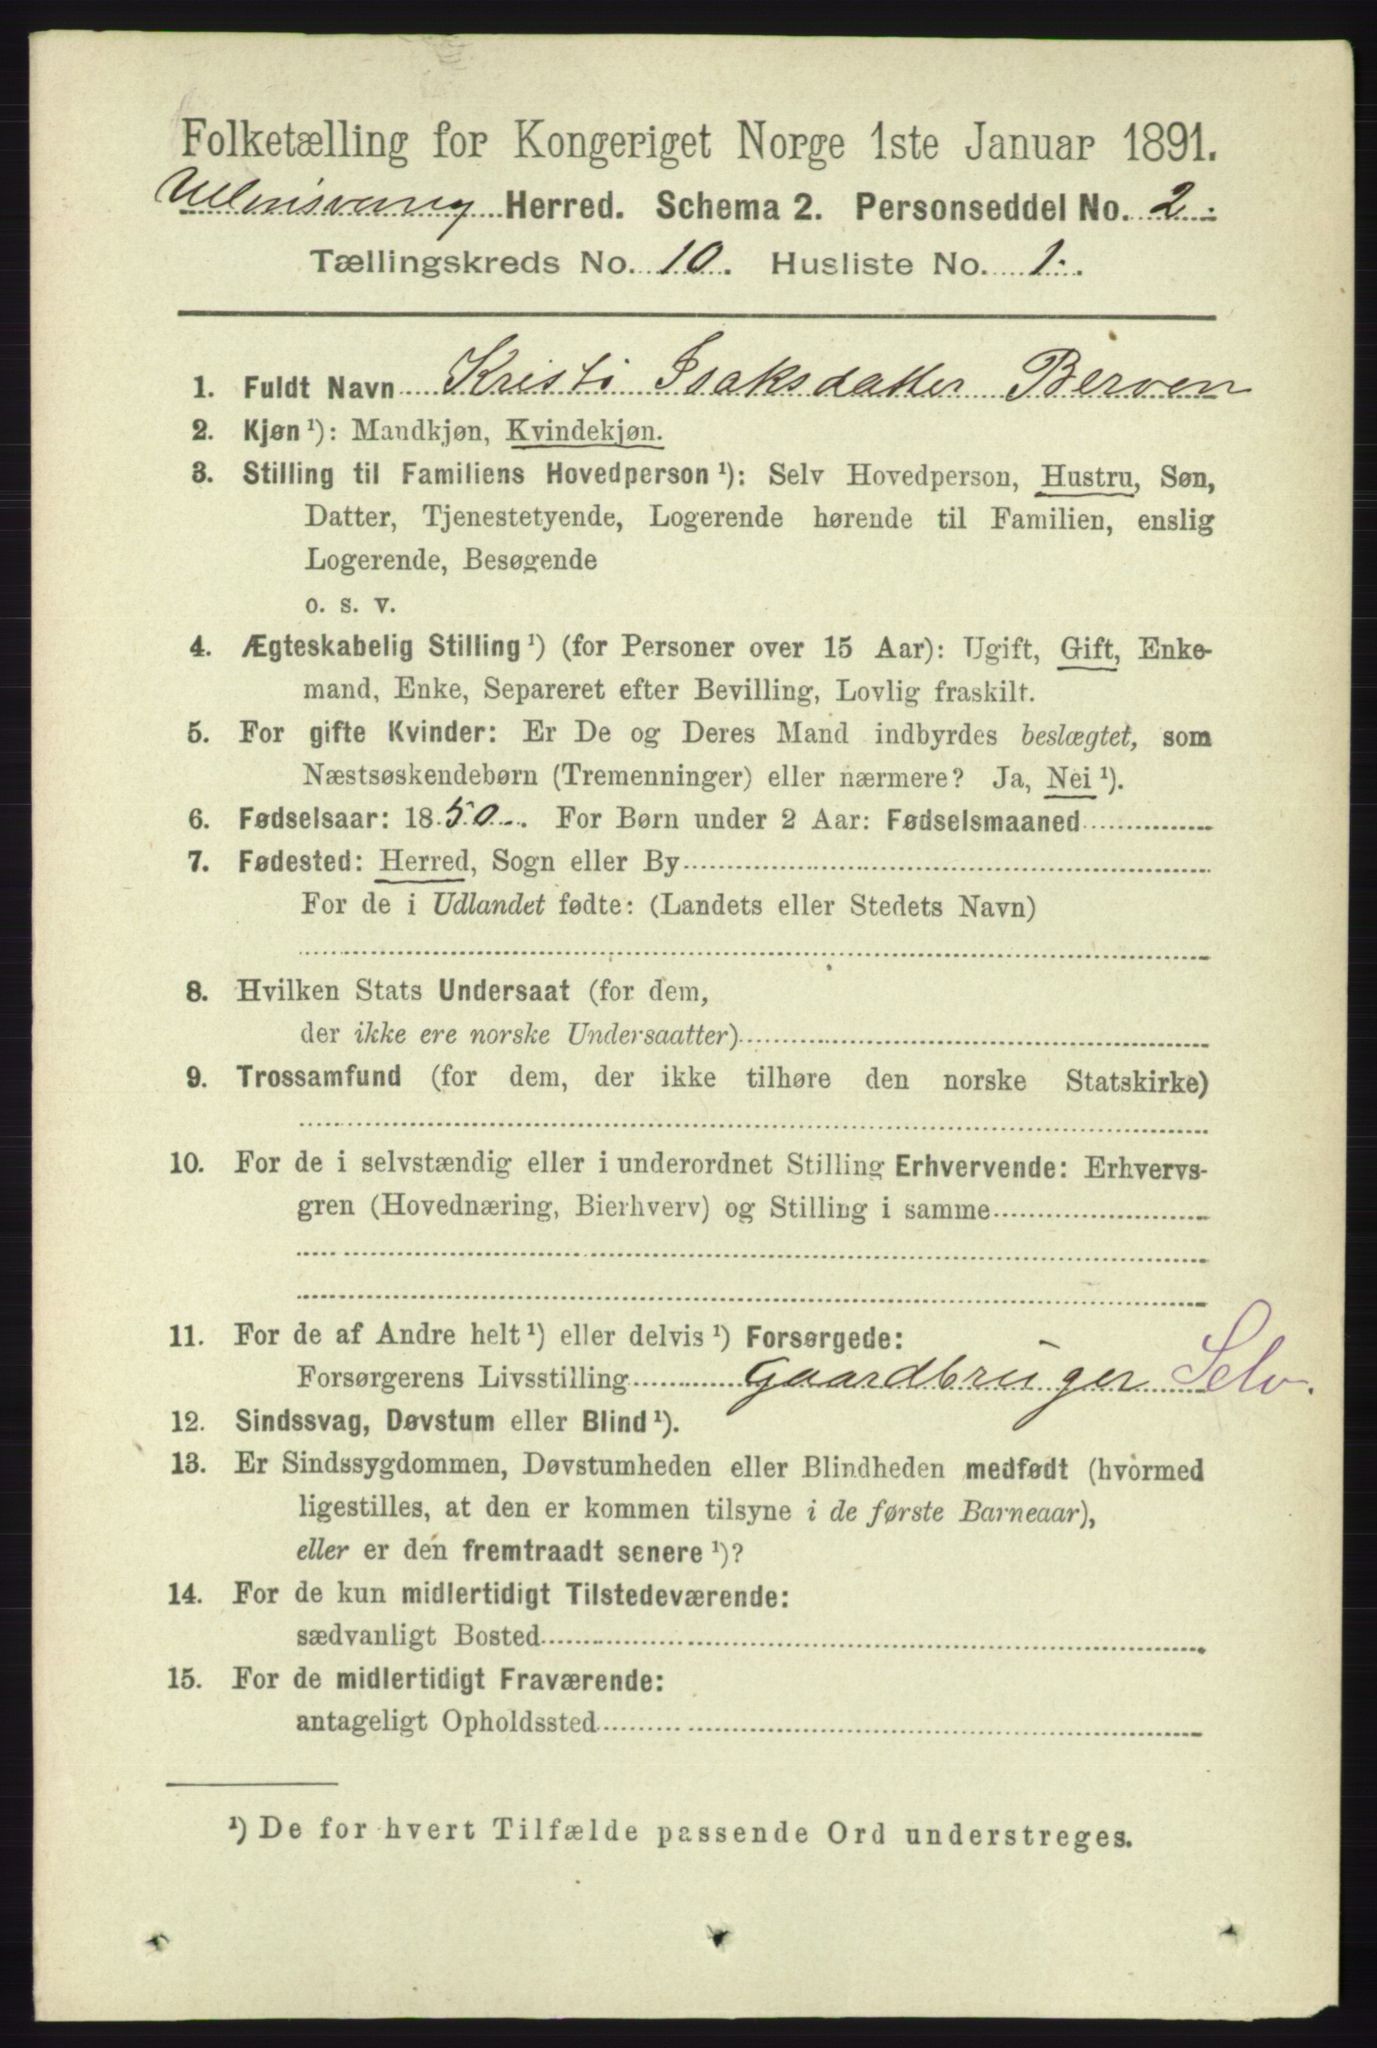 Folketælling for Kongeriget Norge 1ste Januar 1891.
Ullensvang Herred. Schema 2. Personseddel No. 2.
Tællingskreds No. 10. Husliste No. 1.
1. Fuldt Navn Kristi Isaksdatter Berven
2. Kjøn ¹): Mandkjøn, Kvindekjøn.
3. Stilling til Familiens Hovedperson ¹): Selv Hovedperson, Hustru, Søn,
Datter, Tjenestetyende, Logerende hørende til Familien, enslig
Logerende, Besøgende
o. s. v.
4. Ægteskabelig Stilling ¹) (for Personer over 15 Aar): Ugift, Gift, Enke-
mand, Enke, Separeret efter Bevilling, Lovlig fraskilt.
5. For gifte Kvinder: Er De og Deres Mand indbyrdes beslægtet, som
Næstsøskendebørn (Tremenninger) eller nærmere? Ja, Nei ¹).
6. Fødselsaar: 1850. For Børn under 2 Aar: Fødselsmaaned
7. Fødested: Herred, Sogn eller By
For de i Udlandet fødte: (Landets eller Stedets Navn)
8. Hvilken Stats Undersaat (for dem,
der ikke ere norske Undersaatter)
9. Trossamfund (for dem, der ikke tilhøre den norske Statskirke)
10. For de i selvstændig eller i underordnet Stilling Erhvervende: Erhvervs-
gren (Hovednæring, Bierhverv) og Stilling i samme
11. For de af Andre helt ¹) eller delvis ¹) Forsørgede:
Forsørgerens Livsstilling Gaardbruger Selv.
12. Sindssvag, Døvstum eller Blind ¹).
13. Er Sindssygdommen, Døvstumheden eller Blindheden medfødt (hvormed
ligestilles, at den er kommen tilsyne i de første Barneaar),
eller er den fremtraadt senere ¹)?
14. For de kun midlertidigt Tilstedeværende:
sædvanligt Bosted
15. For de midlertidigt Fraværende:
antageligt Opholdssted
¹) De for hvert Tilfælde passende Ord understreges.